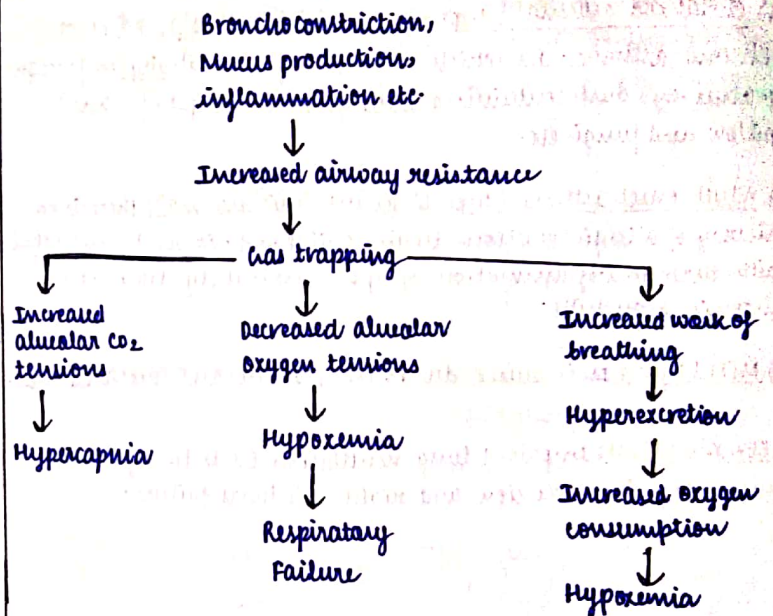 Bronchoconstriction,
Mucus production,
inflammation etc.
Increased airway resistance
Gas trapping
Increased
alveolar CO2
tensions
Hypercapnia
Decreased alveolar
oxygen tensions
Hypoxemia
Respiratory
Failure
Increased work of
breathing
Hyperexcretion
Increased oxygen
consumption
Hypoxemia